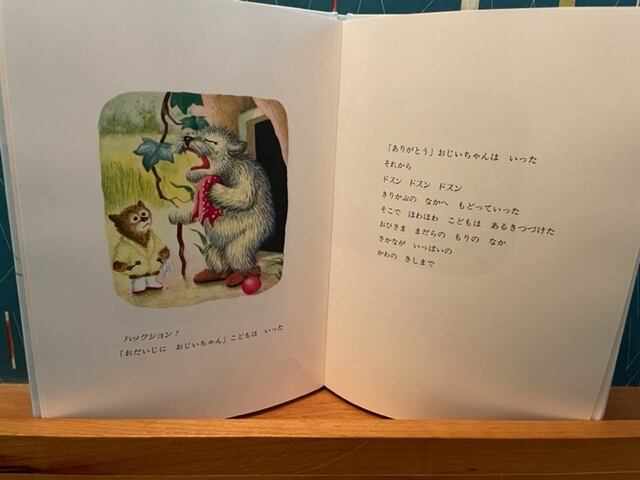 ハックション！
「おだいじに　おじいちゃん」こどもは　いった
「ありがとう」おじいちゃんは　いった
それから
ドスン　ドスン　ドスン
きりかぶの　なかへ　もどっていった
そこで　ほわほわ　こどもは　あるきつづけた
おひさま　まだらの　もりの　なか
さかなが　いっぱいの
かわの　きしまで